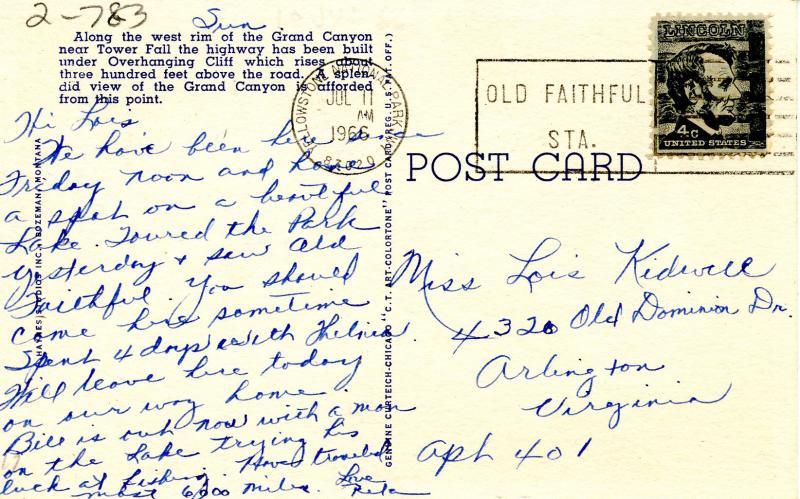 2-783
Sun.
Along the west rim of the Grand Canyon
near Tower Fall the highway has been built
under Overhanging Cliff which rises about
three hundred feet above the road. A splen-
did view of the Grand Canyon is afforded
from this point.
Hi Lois
We have been here since
Friday noon and have
a spot on a beautiful
Lake. Toured the Park
yesterday & saw Old
Faithful. You should
come here sometime
Spent 4 days with Thelma
Will leave here today
on our way home.
Bill is out now with a man
on the Lake trying his
luck at fishing. Have traveled
most 6000 miles. Love
HAYNES STUDIOS INC., BOZEMAN, MONTANA
GENUINE CURTEICH-CHICAGO "C.T. ART-COLORTONE" POST CARD (REG. U.S. PAT. OFF.)
YELLOWSTONE NATIONAL PARK
JUL 11
AM
1966
83020
OLD FAITHFUL
STA.
LINCOLN
4c
UNITED STATES
POST CARD
Miss Lois Kidwell
4320 Old Dominion Dr.
Arlington
Virginia
Apt 401